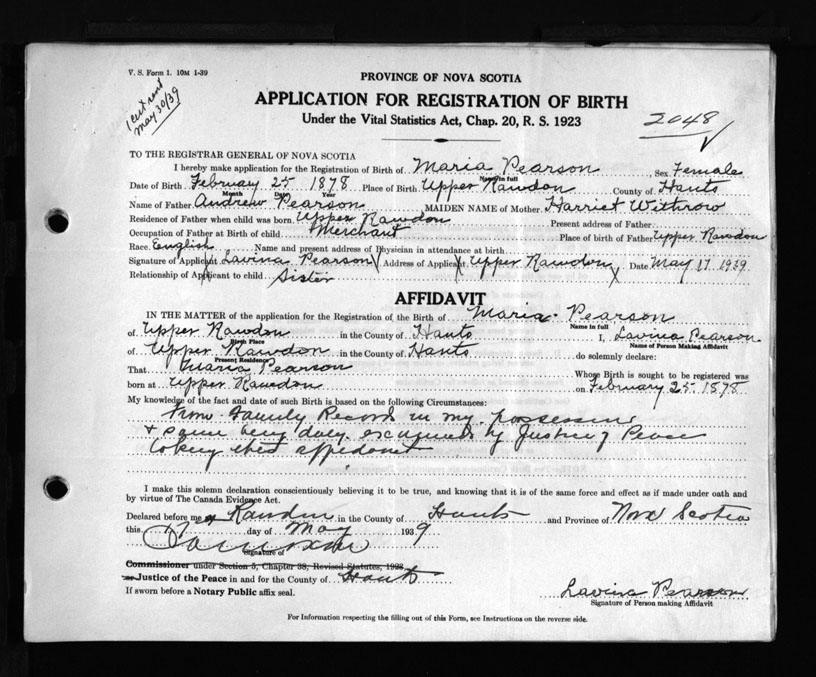 V. S. Form 1. 10M 1-39
May 30/39
PROVINCE OF NOVA SCOTIA
APPLICATION FOR REGISTRATION OF BIRTH
Under the Vital Statistics Act, Chap. 20, R. S. 1923
2048
TO THE REGISTRAR GENERAL OF NOVA SCOTIA
I hereby make application for the Registration of Birth of Maria Pearson Sex Female
Name in full
Date of Birth February 25 1878 Place of Birth Upper Rawdon County of Hants
Month Date Year
Name of Father Andrew Pearson MAIDEN NAME of Mother Harriet Withrow
Residence of Father when child was born Upper Rawdon Present address of Father
Occupation of Father at Birth of child Merchant Place of birth of Father Upper Rawdon
Race English Name and present address of Physician in attendance at birth
Signature of Applicant Lavina Pearson Address of Applicant Upper Rawdon Date May 17 1939
Relationship of Applicant to child Sister
AFFIDAVIT
IN THE MATTER of the application for the Registration of the Birth of Maria Pearson
Name in full
of Upper Rawdon in the County of Hants I, Lavina Pearson
Birth Place Name of Person Making Affidavit
of Upper Rawdon in the County of Hants do solemnly declare:
Present Residence
That Maria Pearson Whose Birth is sought to be registered was
born at Upper Rawdon on February 25 1878
My knowledge of the fact and date of such Birth is based on the following Circumstances:
from Family Record in my possession
& same being duly examined by Justice of Peace
taking this affidavit
I make this solemn declaration conscientiously believing it to be true, and knowing that it is of the same force and effect as if made under oath and
by virtue of The Canada Evidence Act.
Declared before me at Rawdon in the County of Hants and Province of Nova Scotia
this 17 day of May 1939
Signature of
Commissioner under Section 5, Chapter 38, Revised Statutes, 1923
or Justice of the Peace in and for the County of Hants
If sworn before a Notary Public affix seal.
Lavina Pearson
Signature of Person making Affidavit
For Information respecting the filling out of this Form, see Instructions on the reverse side.